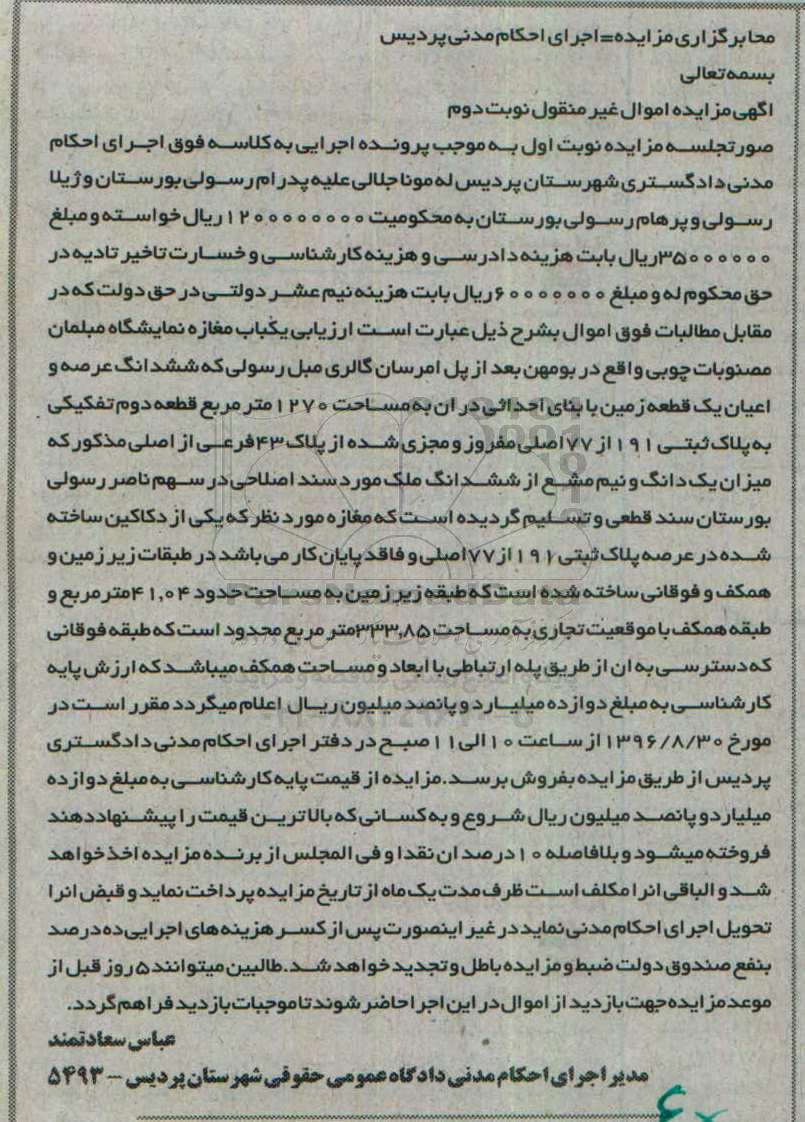 محا برگزاری مزایده=اجرای احکام مدنی پردیس
بسمه تعالی
اگهی مزایده اموال غیر منقول نوبت دوم
صورتجلسه مزایده نوبت اول به موجب پرونده اجرایی به کلاسه فوق اجرای احکام
مدنی دادگستری شهرستان پردیس له مونا جلالی علیه پدرام رسولی بورستان و ژیلا
رسولی و پرهام رسولی بورستان به محکومیت ۱۲۰۰۰۰۰۰۰۰ ریال خواسته و مبلغ
۳۵۰۰۰۰۰۰ریال بابت هزینه دادرسی و هزینه کارشناسی و خسارت تاخیر تادیه در
حق محکوم له و مبلغ ۶۰۰۰۰۰۰۰ریال بابت هزینه نیم عشر دولتی در حق دولت که در
مقابل مطالبات فوق اموال بشرح ذیل عبارت است ارزیابی یکباب مغازه نمایشگاه مبلمان
مصنوبات چوبی واقع در بومهن بعد از پل امرسان گالری مبل رسولی که ششدانگ عرصه و
اعیان یک قطعه زمین با بنای آحداثی در ان به مساحت ۱۲۷۰ متر مربع قطعه دوم تفکیکی
به پلاک ثبتی ۱۹۱ از ۷۷اصلی مفروز و مجزی شده از پلاک ۴۳فرعی از اصلی مذکور که
میزان یک دانگ و نیم مشع از ششدانگ ملک مورد سند اصلاحی در سهم ناصر رسولی
بورستان سند قطعی و تسلیم گردیده است که مغازه مورد نظر که یکی از دکاکین ساخته
شده در عرصه پلاک ثبتی ۱۹۱ از ۷۷اصلی و فاقد پایان کار می باشد در طبقات زیر زمین و
همکف و فوقانی ساخته شده است که طبقه زیر زمین به مساحت حدود ۴۱,۰۴متر مربع و
طبقه همکف با موقعیت تجاری به مساحت ۳۳۳,۸۵متر مربع محدود است که طبقه فوقانی
که دسترسی به ان از طریق پله ارتباطی با ابعاد و مساحت همکف میباشد که ارزش پایه
کارشناسی به مبلغ دوازده میلیارد و پانصد میلیون ریال اعلام میگردد مقرر است در
مورخ ۱۳۹۶/۸/۳۰ از ساعت ۱۰ الی ۱۱ صبح در دفتر اجرای احکام مدنی دادگستری
پردیس از طریق مزایده بفروش برسد.مزایده از قیمت پایه کارشناسی به مبلغ دوازده
میلیارد و پانصد میلیون ریال شروع و به کسانی که بالاترین قیمت را پیشنهاددهند
فروخته میشود و بلافاصله ۱۰ درصد ان نقدا و فی المجلس از برنده مزایده اخذ خواهد
شد و الباقی انرا مکلف است ظرف مدت یک ماه از تاریخ مزایده پرداخت نماید و قبض انرا
تحویل اجرای احکام مدنی نماید در غیر اینصورت پس از کسر هزینه های اجرایی ده درصد
بنفع صندوق دولت ضبط و مزایده باطل و تجدید خواهد شد.طالبین میتوانند ۵ روز قبل از
موعد مزایده جهت بازدید از اموال در این اجرا حاضر شوند تا موجبات بازدید فراهم گردد.
عباس سعادتمند
مدیر اجرای احکام مدنی دادگاه عمومی حقوقی شهرستان پردیس – ۵۴۹۳